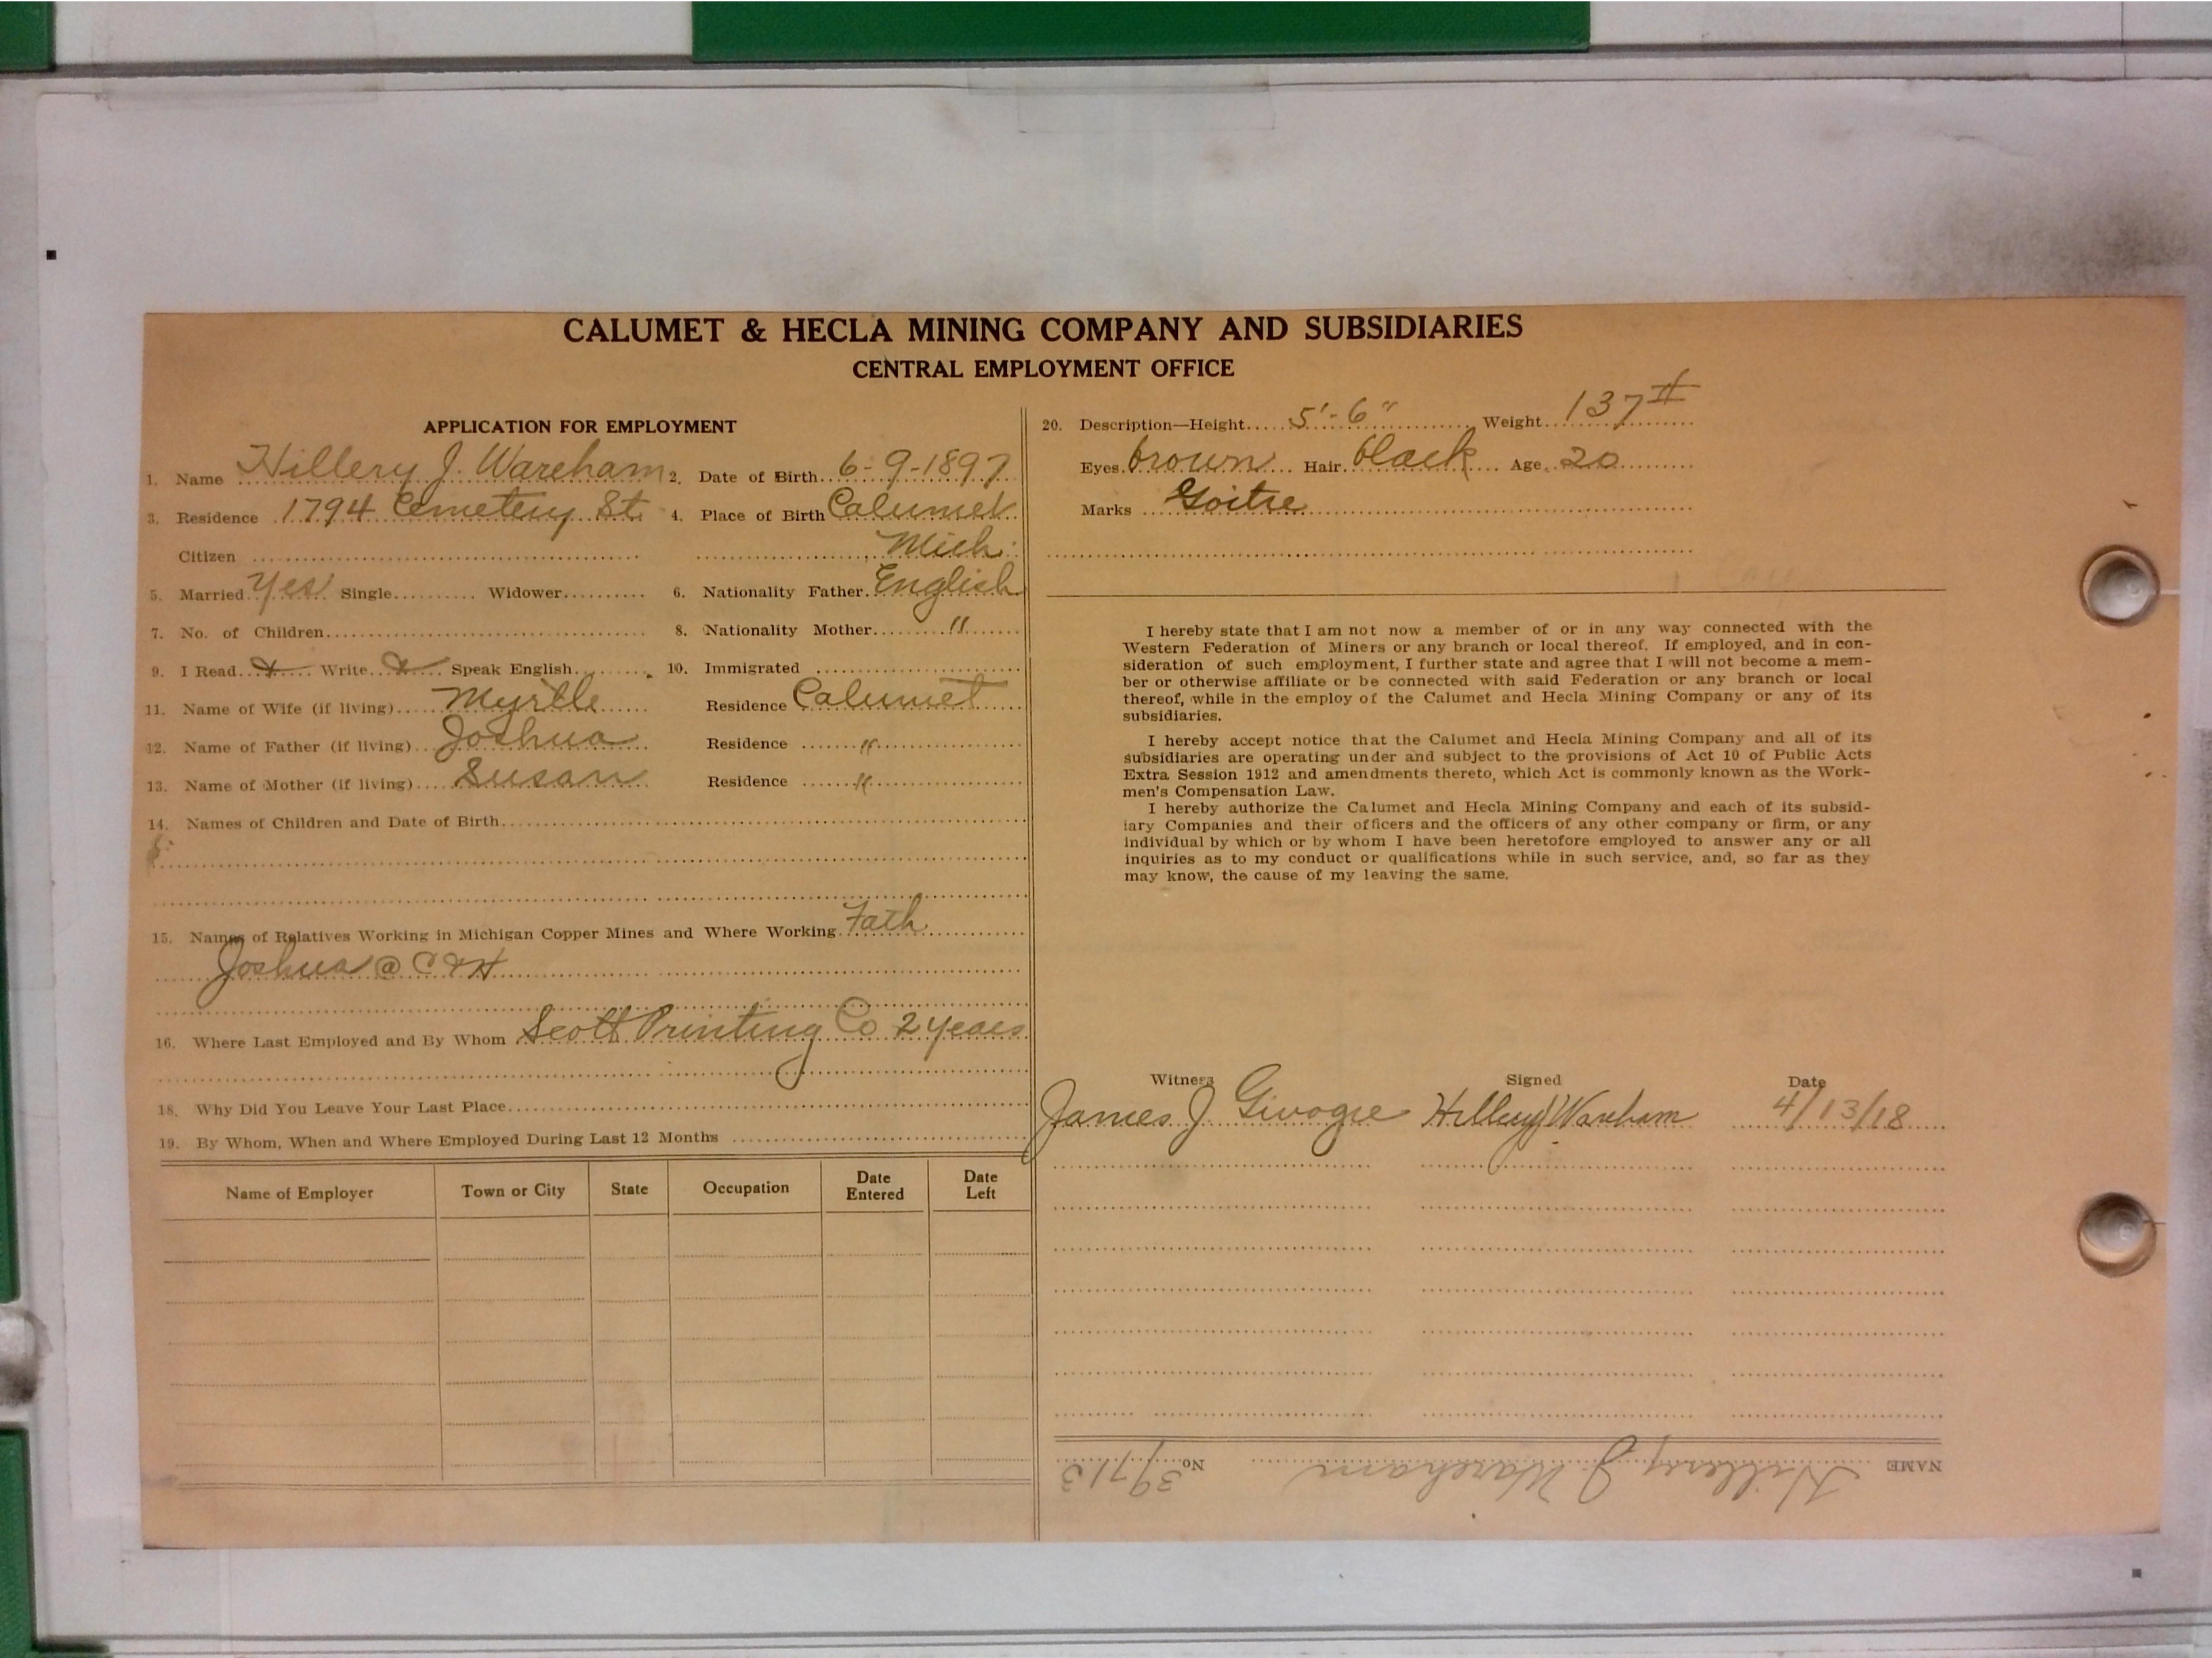 CALUMET & HECLA MINING COMPANY AND SUBSIDIARIES
CENTRAL EMPLOYMENT OFFICE
APPLICATION FOR EMPLOYMENT
1. Name Hillery J. Wareham 2. Date of Birth 6-9-1897
3. Residence 1794 Cemetery St. 4. Place of Birth Calumet
Citizen Mich.
5. Married Yes Single Widower 6. Nationality Father English
7. No. of Children 8. Nationality Mother "
9. I Read x Write x Speak English 10. Immigrated
11. Name of Wife (if living) Myrtle Residence Calumet
12. Name of Father (if living) Joshua Residence "
13. Name of Mother (if living) Susan Residence "
14. Names of Children and Date of Birth
15. Names of Relatives Working in Michigan Copper Mines and Where Working Fath
Joshua @ C & H
16. Where Last Employed and By Whom Scott Printing Co 2 years
18. Why Did You Leave Your Last Place
19. By Whom, When and Where Employed During Last 12 Months
Name of Employer Town or City State Occupation Date Entered Date Left
20. Description—Height 5'-6" Weight 137#
Eyes brown Hair black Age 20
Marks Goitre
I hereby state that I am not now a member of or in any way connected with the
Western Federation of Miners or any branch or local thereof. If employed, and in con-
sideration of such employment, I further state and agree that I will not become a mem-
ber or otherwise affiliate or be connected with said Federation or any branch or local
thereof, while in the employ of the Calumet and Hecla Mining Company or any of its
subsidiaries.
I hereby accept notice that the Calumet and Hecla Mining Company and all of its
subsidiaries are operating under and subject to the provisions of Act 10 of Public Acts
Extra Session 1912 and amendments thereto, which Act is commonly known as the Work-
men's Compensation Law.
I hereby authorize the Calumet and Hecla Mining Company and each of its subsid-
iary Companies and their officers and the officers of any other company or firm, or any
individual by which or by whom I have been heretofore employed to answer any or all
inquiries as to my conduct or qualifications while in such service, and, so far as they
may know, the cause of my leaving the same.
Witness Signed Date
James J. Hillery J Wareham 4/13/18
NAME Hillery J. Wareham No. 39713